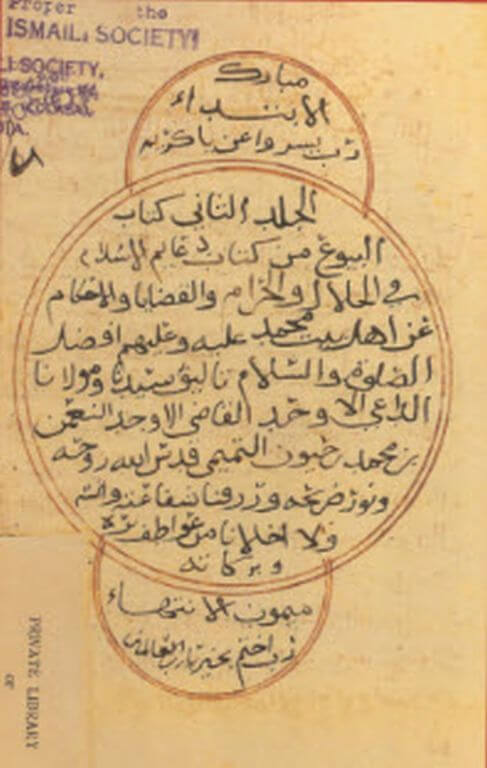 Proper the
ISMAILI SOCIETY
LI SOCIETY,
مبارك
الابتداء
رب يسر واعن يا كريم
الجلد الثاني كتاب
البيوع من كتاب دعائم الاسلام
في الحلال والحرام والقضايا والاحكام
عن اهل بيت محمد عليه وعليهم افضل
الصلوة والسلام تاليف سيدنا ومولانا
الداعي الاوحد القاضي الاوحد النعمن
بن محمد بن حيون التميمي قدس الله روحه
ونور ضريحه ورزقنا شفاعته وانسه
ولا اخلانا من عواطف بره
وبركاته
ميمون الانتهاء
رب اختم بخير يا رب العالمين
PRIVATE LIBRARY
OF